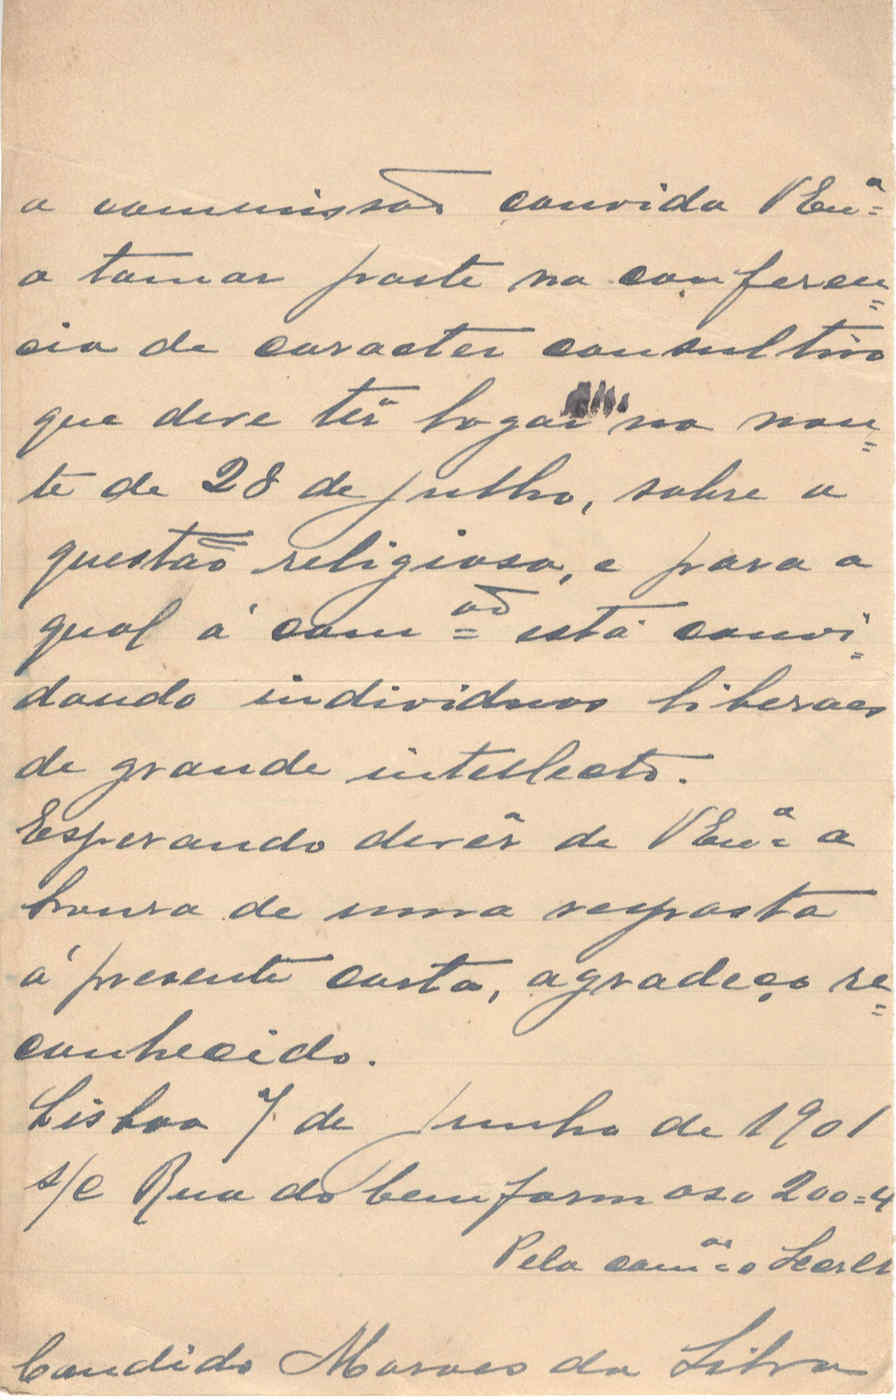 a commissão convida V Exª
a tomar parte na conferen=
cia de caracter consultivo
que deve têr logar na nou=
te de 28 de Julho, sobre a
questão religiosa, e para a
qual á com=ão está convi=
dando individuos liberaes
de grande intellecto.
Esperando devêr de V Exª a
honra de uma resposta
á presente carta, agradeço re=
conhecido.
Lisboa 7 de Junho de 1901
s/c Rua do bemformoso 200=4
Pela com=ão o
Candido Moraes da Silva